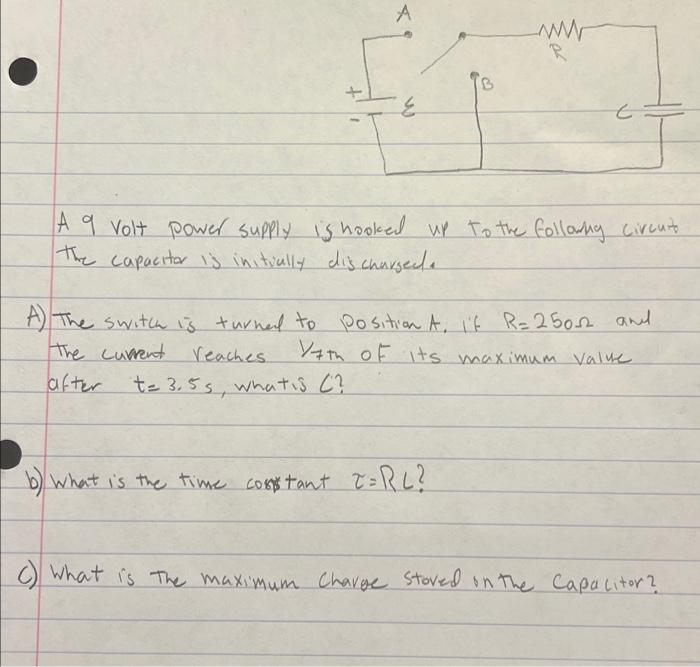 A
R
B
+
ε
-
C
A 9 Volt power supply is hooked up to the following circuit
The capacitor is initially discharged.
A) The switch is turned to position A, if R=250Ω and
the current reaches 1/7th of its maximum value
after t=3.5s, what is C?
b) What is the time constant τ=RC?
C) What is The maximum Charge stored in The Capacitor?